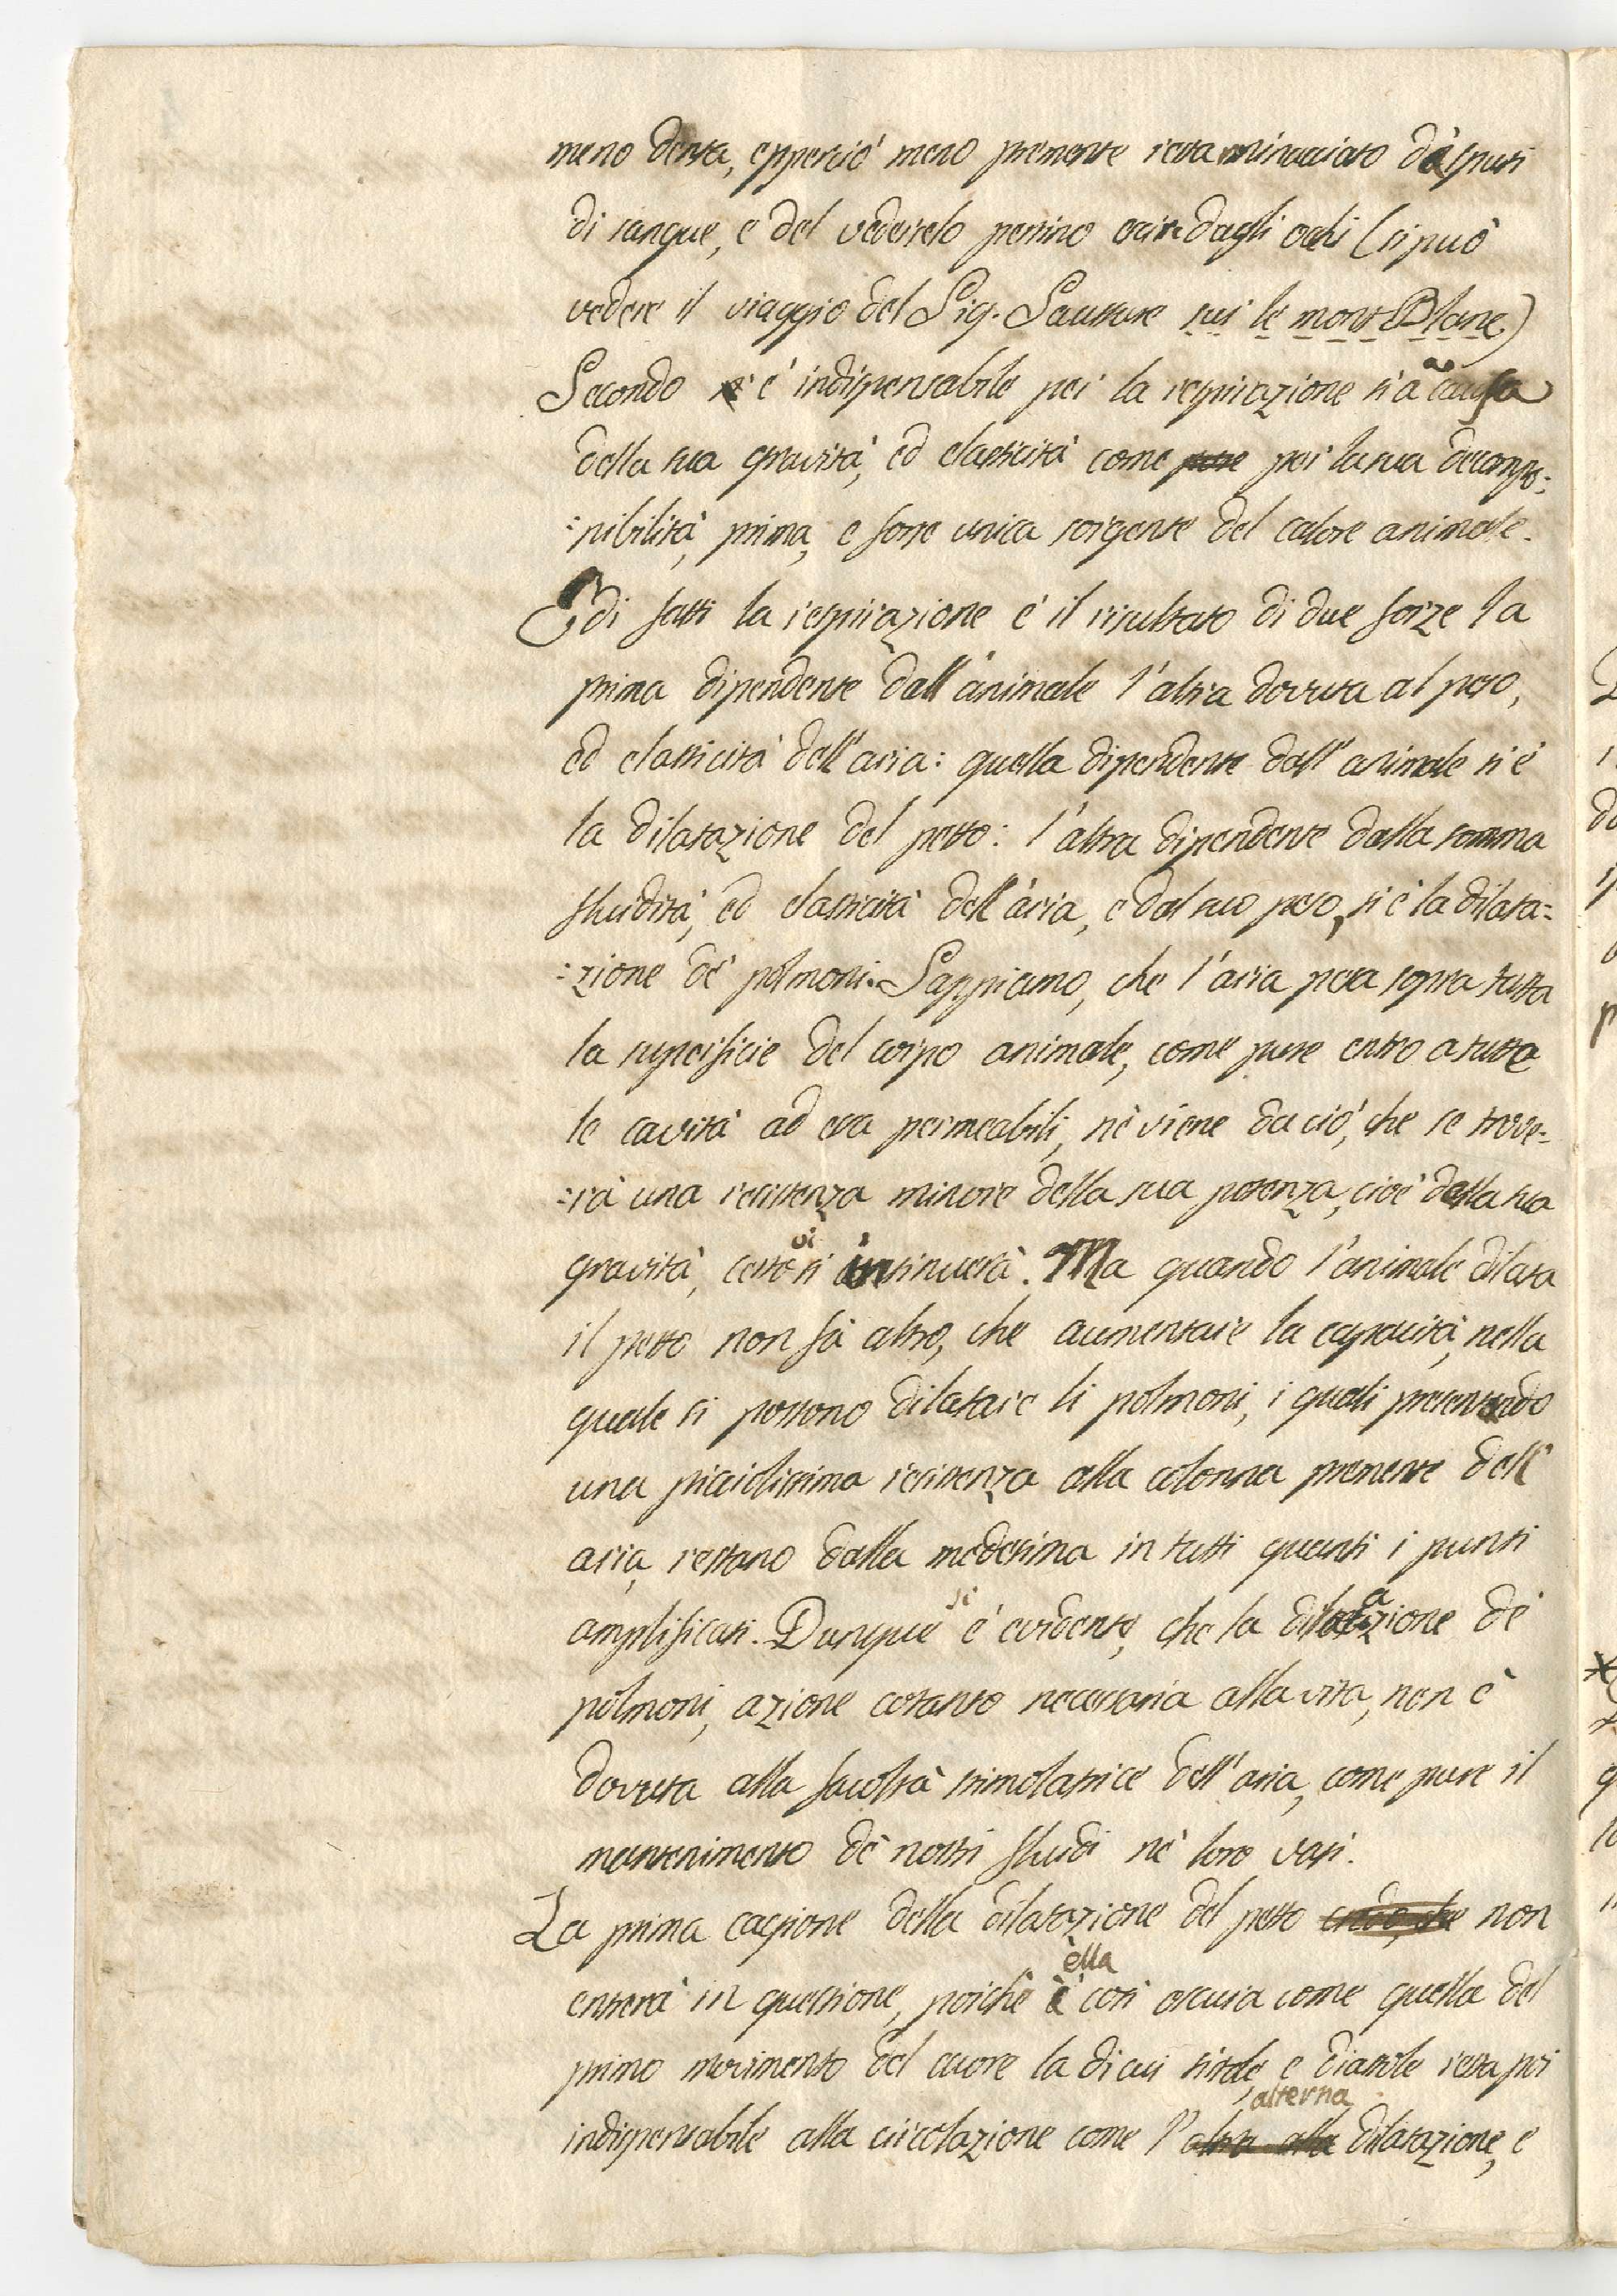 meno densa, epperciò meno premente resta minacciato da sputi
di sangue, e del vederselo persino escir dagli ochi (si può
vedere il viaggio del Sig. Saussure sur le mont Blanc)
Secondo è indispensabile per la respirazione sì a causa
della sua gravità, ed elasticità come pure per la sua decompo=
=nibilità, prima, e forse unica sorgente del calore animale.
E di fatti la respirazione è il risultato di due forze la
prima dipendente dall'animale l'altra dovuta al peso,
ed elasticità dell'aria: quella dipendente dall'animale si è
la dilatazione del petto: l'altra dipendente dalla somma
fluidità, ed elasticità dell'aria, e dal suo peso, si è la dilata=
=zione de' polmoni. Sappiamo, che l'aria pesa sopra tutta
la superficie del corpo animale, come pure entro a tutte
le cavità ad essa permeabili, nè viene da ciò, che se trove=
=rà una resistenza minore della sua potenza, cioè della sua
gravità, certo vi si insinuerà. Ma quando l'animale dilata
il petto non fà altro, che aumentare la capacità, nella
quale si possono dilatare li polmoni, i quali presentando
una picciolissima resistenza alla colonna premente dell'
aria, restano dalla medesima in tutti quanti i punti
amplificati. Dunque si è evidente, che la dilatazione de'
polmoni, azione cotanto necessaria alla vita, non è
dovuta alla facoltà stimolatrice dell'aria, come pure il
mantenimento de' nostri fluidi ne' loro vasi.
La prima cagione della dilatazione del petto credo, che non
entrerà in questione, poichè è ella così oscura come quella del
primo movimento del cuore la di cui sistole, e diastole resta poi
indispensabile alla circolazione come l'altra alla alterna dilatazione, e